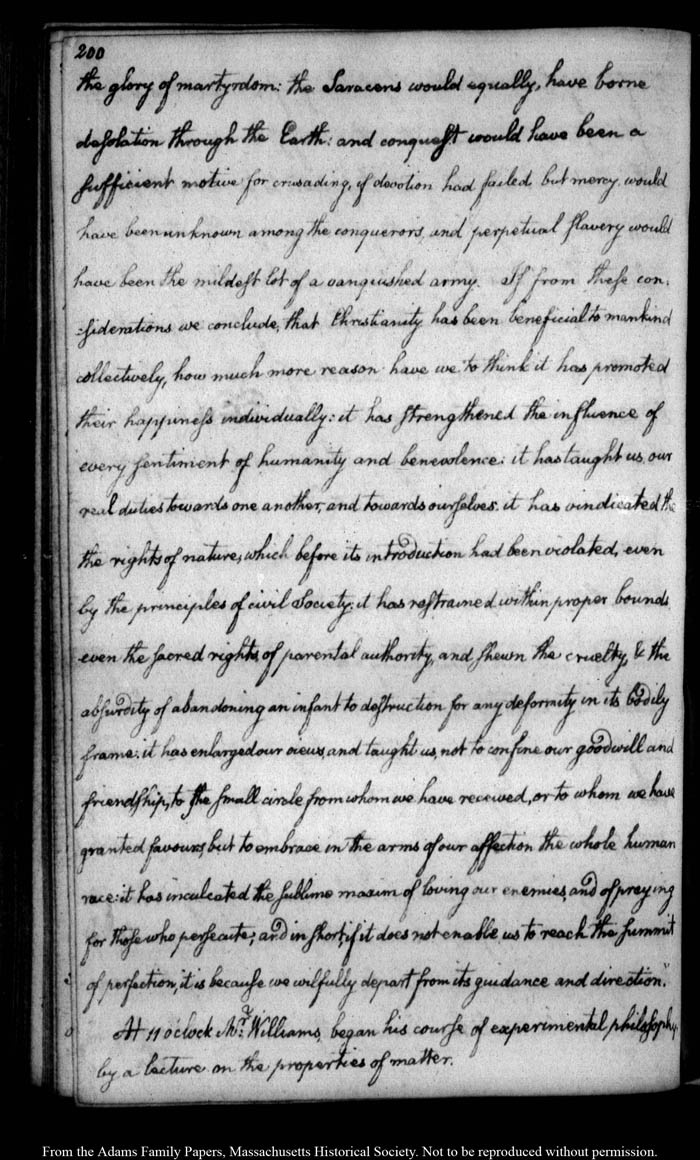 200
the glory of martyrdom: the Saracens would equally, have borne
desolation through the Earth: and conquest would have been a
sufficient motive for crusading, if devotion had failed but mercy, would
have been unknown among the conquerors, and perpetual slavery would
have been the mildest lot of a vanquished army. If from these con-
-siderations we conclude, that Christianity has been beneficial to mankind
collectively, how much more reason have we to think it has promoted
their happiness individually: it has strengthened the influence of
every sentiment of humanity and benevolence: it has taught us, our
real duties towards one another, and towards ourselves: it has vindicated the
the rights of nature, which before its introduction had been violated, even
by the principles of civil Society: it has restrained within proper bounds
even the sacred rights, of parental authority, and shewn the cruelty, & the
absurdity of abandoning an infant to destruction for any deformity in its bodily
frame: it has enlarged our views, and taught us, not to confine our goodwill and
friendship, to the small circle from whom we have received, or to whom we have
granted favours, but to embrace in the arms of our affection the whole human
race: it has inculcated the sublime maxim of loving our enemies, and of praying
for those who persecute; and in short, if it does not enable us to reach the summit
of perfection, it is because we wilfully depart from its guidance and direction."
At 11 o'clock Mr: Williams, began his course of experimental philosophy,
by a lecture on the properties of matter.
From the Adams Family Papers, Massachusetts Historical Society. Not to be reproduced without permission.